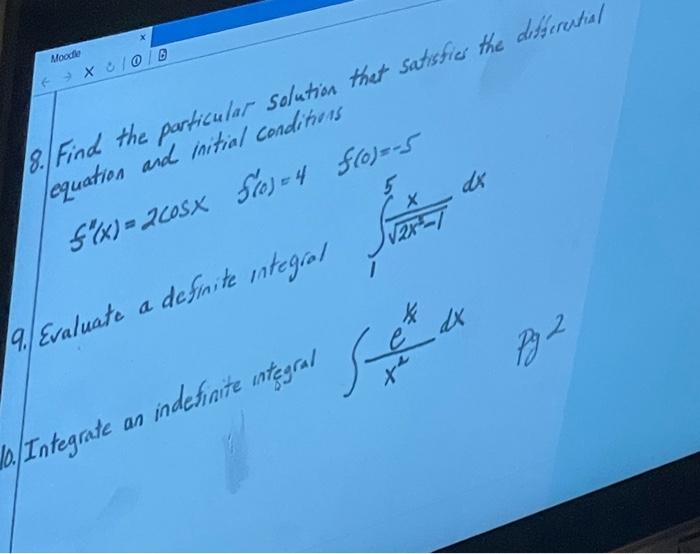 Moodle
8. Find the particular solution that satisfies the differential
equation and initial conditions
f"(x) = 2cosx f'(0) = 4 f(0) = -5
9. Evaluate a definite integral ∫₁⁵ x/√(2x²-1) dx
10. Integrate an indefinite integral ∫ e^(1/x)/x² dx
Pg 2